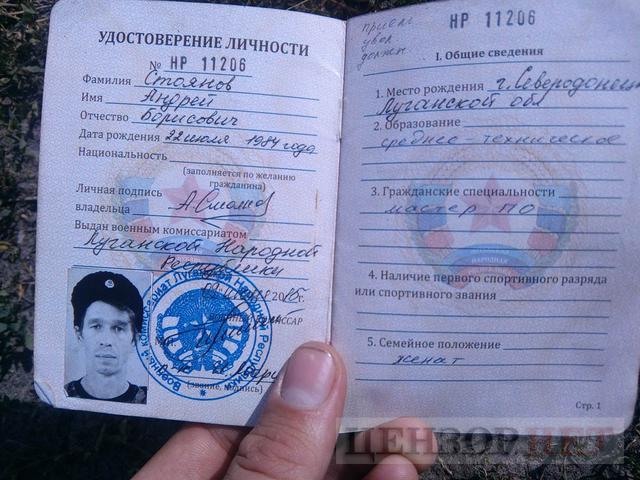 УДОСТОВЕРЕНИЕ ЛИЧНОСТИ
№ НР 11206
Фамилия Стоянов
Имя Андрей
Отчество Борисович
Дата рождения 22 июля 1984 года
Национальность
(заполняется по желанию
гражданина)
Личная подпись
владельца
Выдан военным комиссариатом
Луганской Народной
Республики
2015г.
(звание, подпись)
Военный комиссариат Луганской Народной Республики
НР 11206
I. Общие сведения
1. Место рождения г. Северодонецк
Луганской обл
2. Образование
средне техническое
3. Гражданские специальности
мастер ПО
НАРОДНАЯ
4. Наличие первого спортивного разряда
или спортивного звания
5. Семейное положение
женат
Стр. 1
ЦЕНЗОР.НЕТ